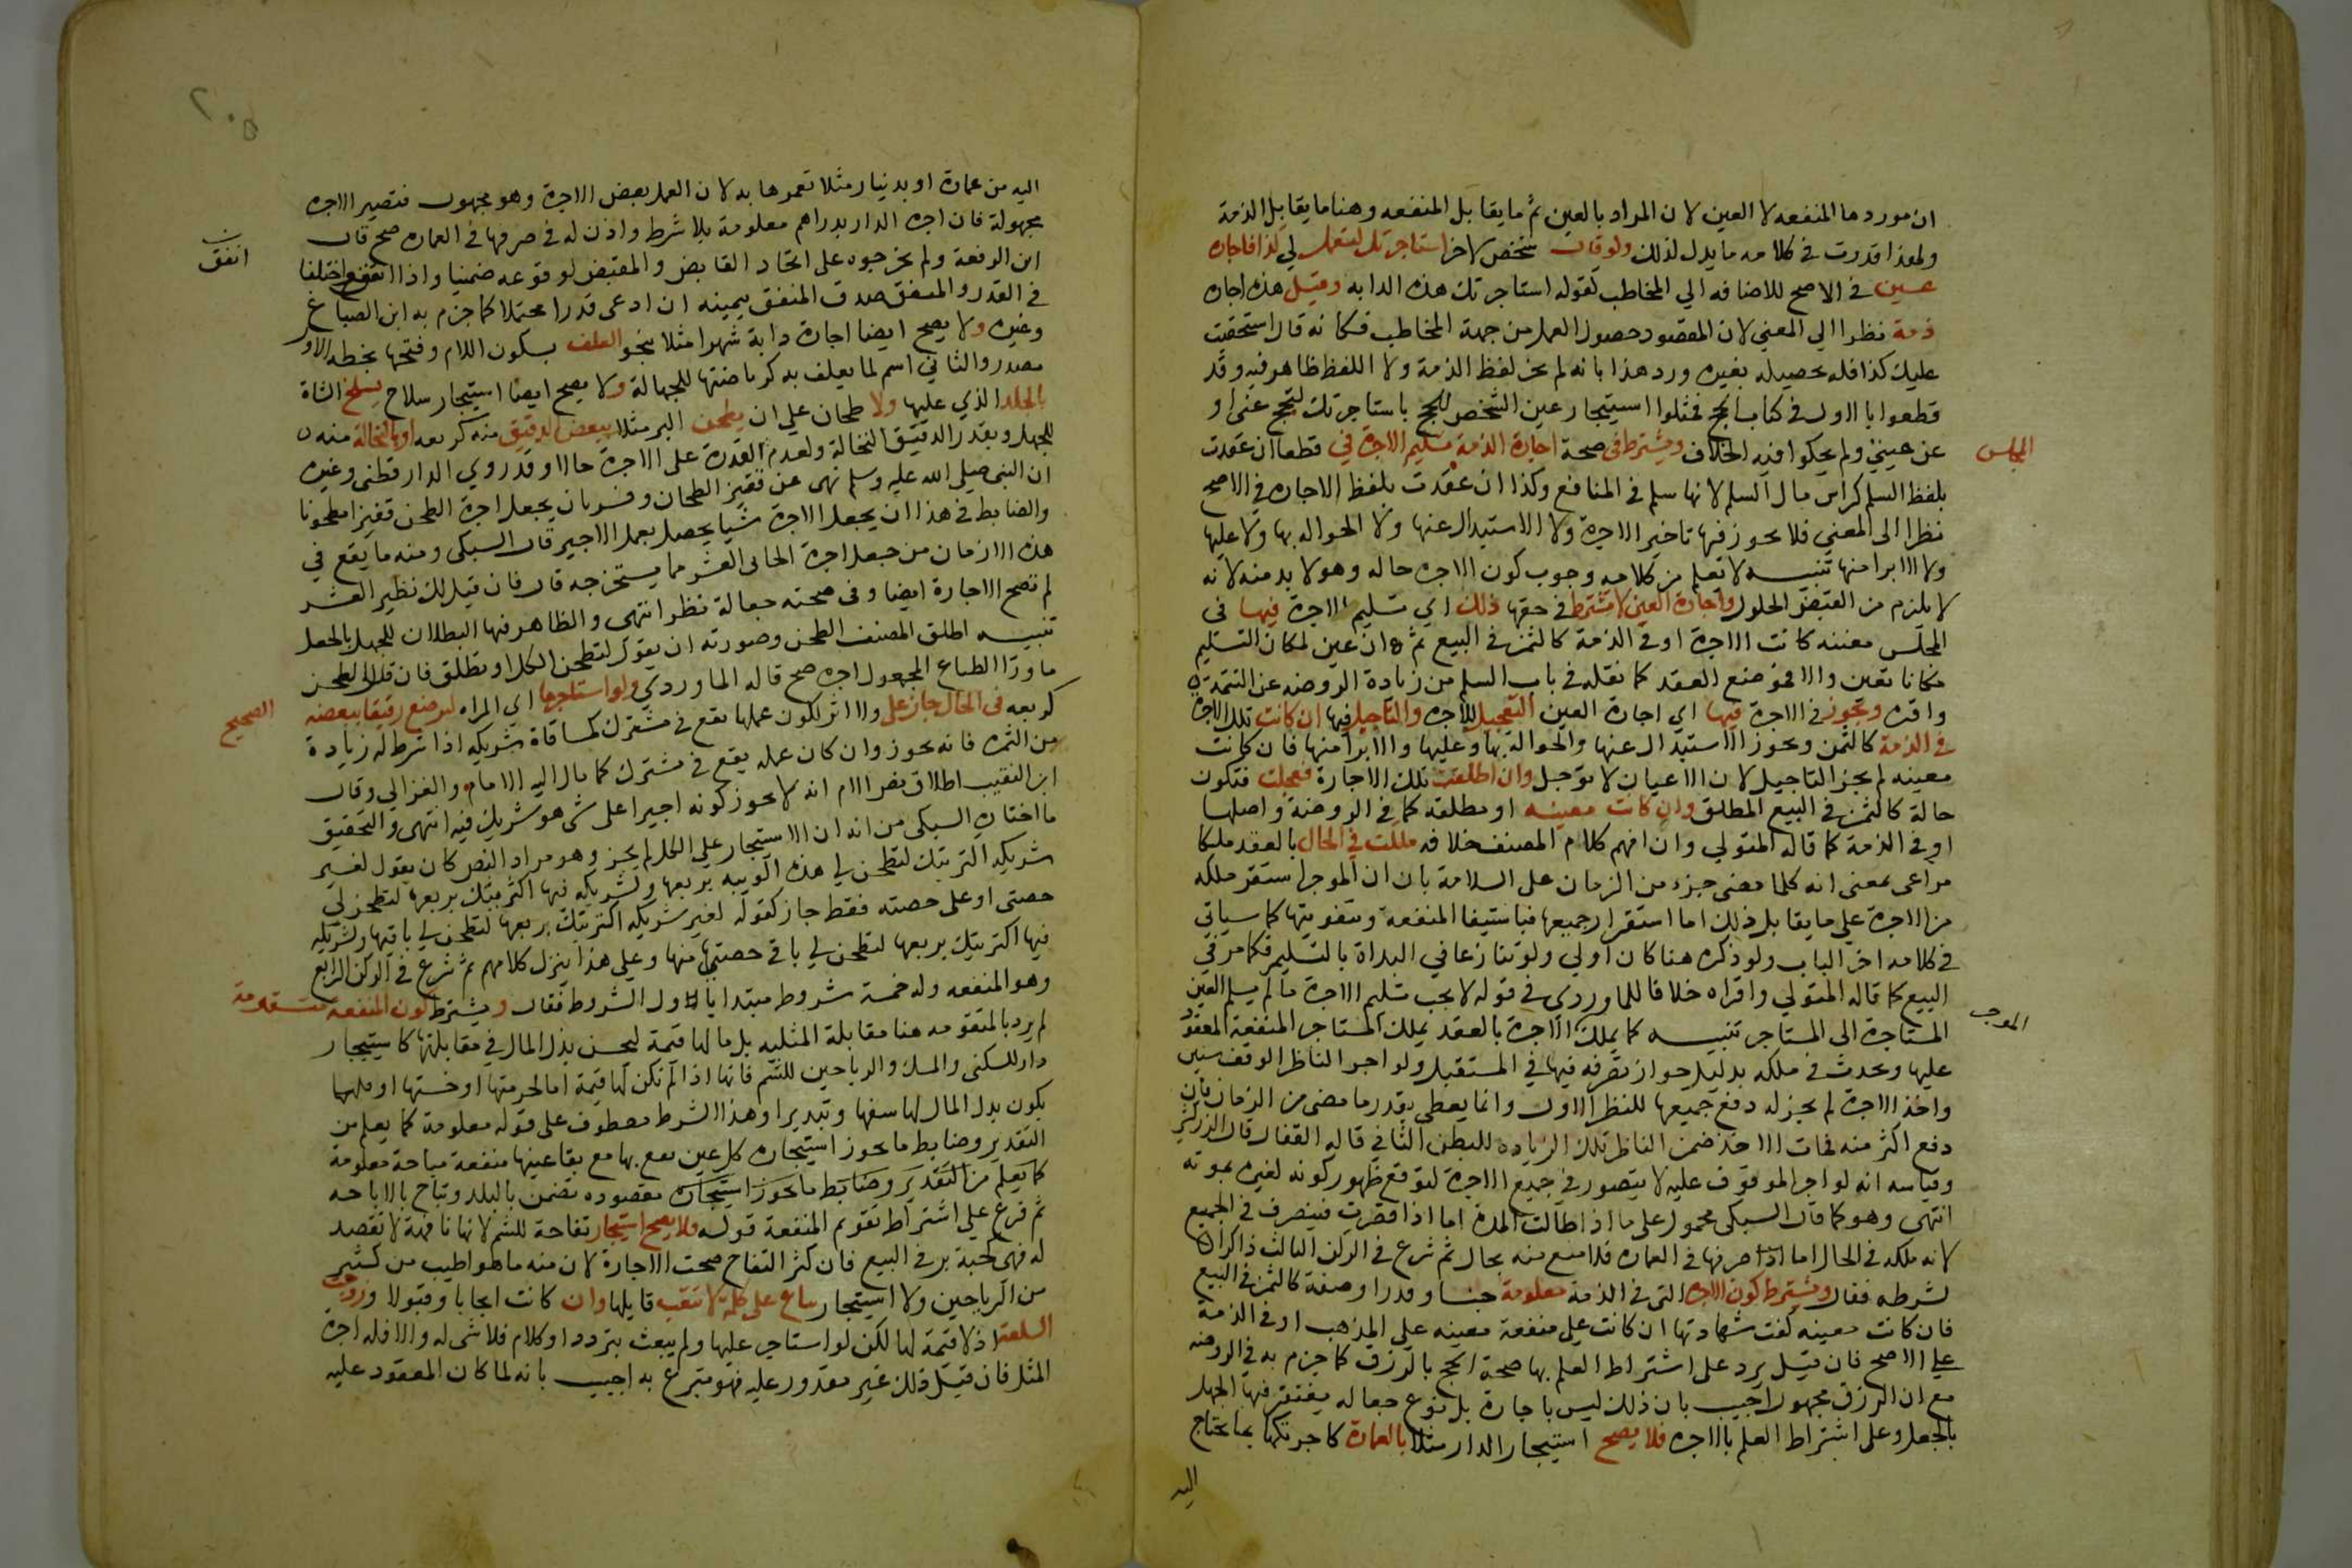 ان موردها المنفعه لا العين لان المراد بالعين ثم ما يقابل المنفعه وهنا ما يقابل الذمة
ولهذا قدرت في كلامه ما يدل لذلك ولو قال شخص لاخر استاجرتك لتعمل لي كذا فاجاره
عين في الاصح للاضافه الي المخاطب كقوله استاجرتك هذه الدابه وقيل هذه اجاره
ذمة نظرا الي المعني لان المقصود حصول العمل من جهة المخاطب فكانه قال استحقيت
عليك كذا فله تحصيله بغيره ورد هذا بانه لم يجز لفظ الذمة ولا اللفظ ظاهر فيه وقد
قطعوا بالاول في كتاب الحج فمثلوا استيجار عين الشخص للحج باستاجرتك لتحج عني او
عن عيني ولم يحكوا فيه الخلاف ويشترط في صحة اجارة الذمة تسليم الاجرة في قطعا ان عقدت
المجلس
بلفظ السلم كراس مال السلم لانها سلم في المنافع وكذا ان عقدت بلفظ الاجاره في الاصح
نظرا الى المعني فلا يجوز فيها تاخير الاجرة ولا الاستبدال عنها ولا الحواله بها ولا عليها
ولا الابرا منها تنبيه لا تعلم من كلامه وجوب كون الاجره حاله وهو لا بد منه لانه
لا يلزم من القبض الحلول واجارة العين لا يشترط في حقها ذلك اي تسليم الاجرة فيها في
المجلس معينه كانت الاجرة او في الذمة كالثمن في البيع ثم ان عين لمكان التسليم
مكانا تعين والا فموضع العقد كما نقله في باب السلم من زيادة الروضه عن التتمة
واقره ويجوز في الاجرة فيها اي اجارة العين التعجيل للاجره والتاجيل فيها ان كانت تلك الاجرة
في الذمة كالثمن ويجوز الاستبدال عنها والحوالة بها وعليها والابرا منها فان كانت
معينه لم يجز التاجيل لان الاعيان لا توجل وان اطلقت تلك الاجارة فعجلت فتكون
حالة كالثمن في البيع المطلق وان كانت معينه او مطلقه كما في الروضة واصلها
او في الذمة كما قاله المتولي وان افهم كلام المصنف خلافه ملكت في الحال بالعقد ملكا
مراعى بمعنى انه كلما مضى جزء من الزمان على السلامة بان ان الموجر استقر ملكه
من الاجرة علي ما يقابل ذلك اما استقرار جميعها فباستيفا المنفعه وتفويتها كما سياتي
في كلامه اخر الباب ولو ذكره هنا كان اولي ولو تنازعا في البداة بالتسليم فكما مر في
البيع كما قاله المتولي واقراه خلافا للماوردي في قوله لا يجب تسليم الاجرة ما لم يسلم العين
المستاجرة الى المستاجر تنبيه كما يملك الاجرة بالعقد يملك المستاجر المنفعة المعقود
الموجر
عليها ويحدث في ملكه بدليل جواز تصرفه فيها في المستقبل ولو اجر الناظر الوقف سنين
واخذ الاجرة لم يجز له دفع جميعها للنظر الاول وانما يعطي بقدر ما مضى من الزمان فان
دفع اكثر منه فمات الاخذ ضمن الناظر تلك الزياده للبطن الثاني قاله القفال قال الزركشي
وقياسه انه لو اجر الموقوف عليه لا يتصور في جميع الاجرة لتوقع ظهور كونه لغيره بموته
انتهى وهو كما قال السبكي محمول على ما اذا طالت المدة اما اذا قصرت فيتصرف في الجميع
لانه ملكه في الحال اما اذا صرفها في العماره فلا منع منه بحال ثم شرع في الركن الثالث ذاكرا
لشرطه فقال ويشترط كون الاجره التي في الذمة معلومة جنسا وقدرا وصفة كالثمن في البيع
فان كانت معينه كفت شهادتها ان كانت علي منفعة معينه على المذهب او في الذمة
علي الاصح فان قيل يرد على اشتراط العلم بها صحة الحج بالرزق كما جزم به في الروضه
مع ان الرزق مجهول اجيب بان ذلك ليس باجارة بل نوع جعاله يغتفر فيها الجهل
بالجعل وعلى اشتراط العلم بالاجره فلا يصح استيجار الدار مثلا بالعمارة كاجرتكها بما تحتاج
اليه
٢٠٥
اليه من عمارة او بدينار مثلا تعمرها به لان العمل بعض الاجرة وهو مجهول فتصير الاجره
مجهولة فان اجره الدار بدراهم معلومة بلا شرط واذن له في صرفها في العماره صح قال
ابن الرفعة ولم يخرجوه على اتحاد القابض والمقبض لوقوعه ضمنيا واذا انفق واختلفا
انفق
في القدر والمنفق صدق المنفق بيمينه ان ادعى قدرا محتملا كما جزم به ابن الصباغ
وغيره ولا يصح ايضا اجارة دابة شهرا مثلا بنحو العلف بسكون اللام وفتحها بخطه الاو
مصدر والثاني اسم لما يعلف به كرياضتها للجهالة ولا يصح ايضا استيجار سلاخ يسلخ الشاة
بالجلد الذي عليها ولا طحان علي ان يطحن البر مثلا ببعض الدقيق منه كربعه او بالنخالة منه
للجهل وبقدر الدقيق النخالة ولعدم القدرة على الاجرة حالا وقد روي الدارقطني وغيره
ان النبي صلى الله عليه وسلم نهى عن قفيز الطحان وفسر بان يجعل اجرة الطحن قفيزا مطحونا
والضابط في هذا ان يجعل الاجرة شيا يحصل بعمل الاجير قال السبكي ومنه ما يقع في
هذه الازمان من جعل اجرة الجابي العشر مما يستخرجه قال فان قيل لك نظير العشر
لم تصح الاجارة ايضا وفي صحته جعالة نظر انتهى والظاهر فيها البطلان للجهل بالجعل
تنبيه اطلق المصنف الطحن وصورته ان يقول لتطحن الكل او يطلق فان قال لتطحن
ما ورا الطباع المجعول اجره صح قاله الماوردي ولو استاجرها اي المراه لترضع رقيقا ببعضه
كربعه في الحال جاز على والا اثر لكون عملها يقع في مشترك كمساقاة شريكه اذا شرط له زيادة
الصحيح
من الثمره فانه يجوز وان كان عمله يقع في مشترك كما مال اليه الامام والغزالي وقال
ابن النقيب اطلاق نص الام انه لا يجوز كونه اجيرا على شي هو شريك فيه انتهى والتحقيق
ما اختاره السبكي من انه ان الاستيجار علي الكل لم يجز وهو مراد النص كان يقول لغير
شريكه اكتريتك لتطحن لي هذه الويبه بربعها ولشريكه فيها اكتريتك بربعها لتطحن لي
حصتي او على حصته فقط جاز كقوله لغير شريكه اكتريتك بربعها لتطحن لي باقيها ولشريكه
فيها اكتريتك بربعها لتطحن لي باقي حصتي منها وعلى هذا ينزل كلامهم ثم شرع في الركن الرابع
وهو المنفعه وله خمسة شروط مبتدا بالاول الشروط فقال ويشترط كون المنفعة متقومة
لم يرد بالمتقومه هنا مقابلة المثليه بل ما لها قيمة ليحسن بذل المال في مقابلتها كاستيجار
دار للسكنى والمسك والرياحين للشم فانها اذا لم تكن لها قيمة اما لحرمتها او خستها او قلتها
يكون بذل المال لها سفها وتبذيرا وهذا الشرط معطوف على قوله معلومة كما يعلم من
التقدير وضابط ما يجوز استيجاره كل عين ينتفع بها مع بقا عينها منفعة مباحة معلومة
كما يعلم من التقدير وضابط ما يجوز استيجاره مقصوده تضمن بالبدل وتباح بالاباحه
ثم فرع علي اشتراط تقوم المنفعة قوله فلا يصح استيجار تفاحة للشم لانها تافهة لا تقصد
له فهي كحبة بر في البيع فان كثر التفاح صحت الاجارة لان منه ما هو اطيب من كثير
من الرياحين ولا استيجار بياع على كلمة لا تتعب قايلها وان كانت ايجابا وقبولا وروجت
السلعة اذ لا قيمة لها لكن لو استاجر عليها ولم يبعث بتردد او كلام فلا شي له والا فله اجرة
المثل فان قيل ذلك غير مقدور عليه فهو متبرع به اجيب بانه لما كان المعقود عليه